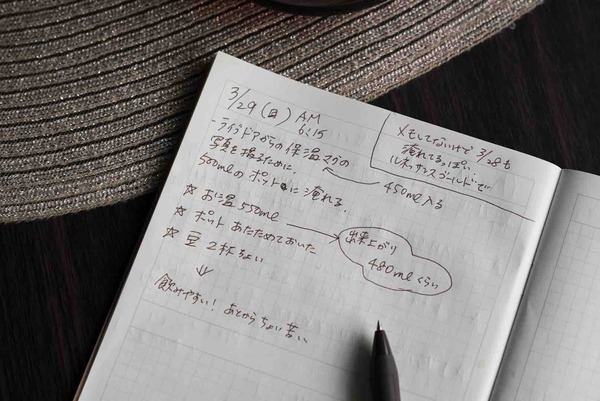 3/29(日) AM
6:15
メモしてないけど 3/28も
淹れてるっぽい。
ルネッサンスゴールドで
-ライブドアからの保温マグの
写真を撮るために、
450ml入る
500mlのポットに淹れる。
☆ お湯 550ml
☆ ポット あたためておいた
☆ 豆 2杯ちょい
出来上がり
480mlくらい
飲みやすい! あとからちょい苦い